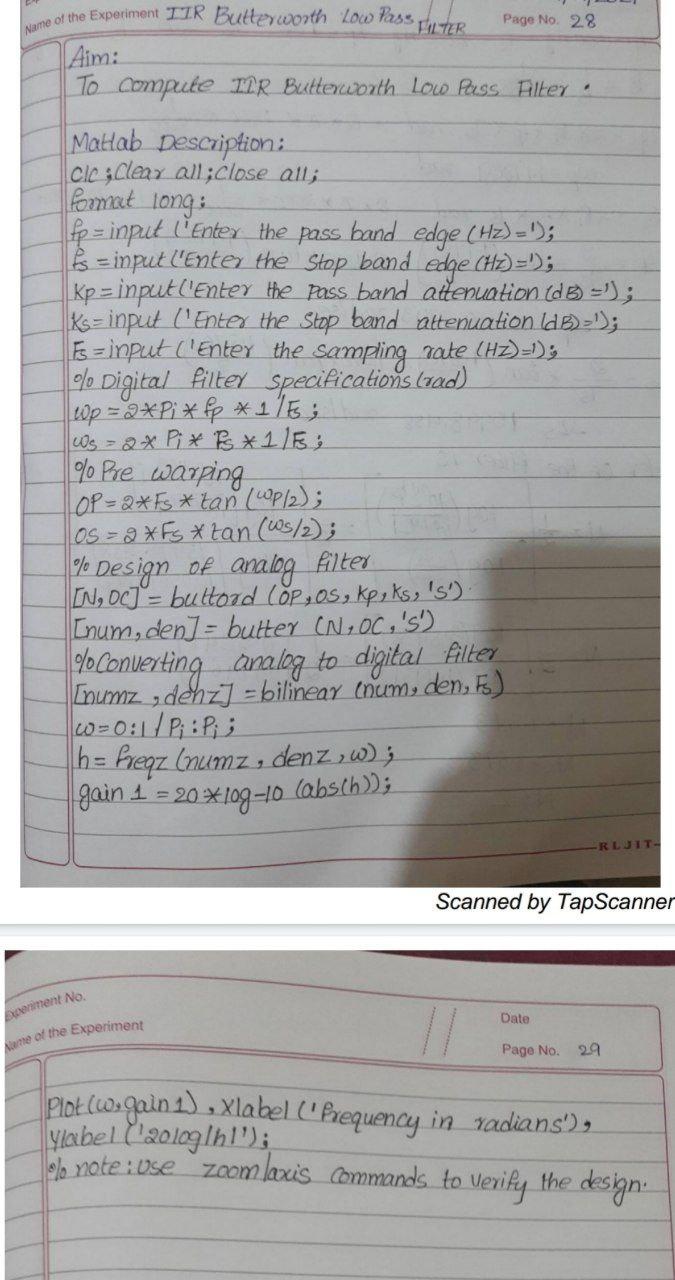 Name of the Experiment IIR Butterworth Low Pass FILTER Page No. 28
Aim:
To compute IIR Butterworth Low Pass Filter .
Matlab Description:
clc ; Clear all ; close all ;
format long ;
fp = input ('Enter the pass band edge (Hz) =');
fs = input ('Enter the Stop band edge (Hz) =');
Kp = input ('Enter the Pass band attenuation (dB) =');
Ks = input ('Enter the Stop band attenuation (dB) =');
Fs = input ('Enter the sampling rate (HZ) =');
% Digital filter specifications (rad)
wp = 2 * Pi * fp * 1 / Fs ;
ws = 2 * Pi * Fs * 1 / Fs ;
% Pre warping
OP = 2 * Fs * tan (wp/2) ;
OS = 2 * Fs * tan (ws/2) ;
% Design of analog filter
[N, OC] = buttord (OP, OS, Kp, Ks, 's')
[num, den] = butter (N, OC, 's')
% Converting analog to digital filter
[numz , denz] = bilinear (num, den, Fs)
w = 0 : 1 / Pi : Pi ;
h = freqz (numz , denz , w) ;
gain 1 = 20 * log-10 (abs(h)) ;
RLJIT
Scanned by TapScanner
Experiment No.
Name of the Experiment
Date
Page No. 29
Plot (w, gain 1) , Xlabel ('frequency in radians') ,
Ylabel ('20log|h|') ;
% note : use zoom/axis commands to verify the design.